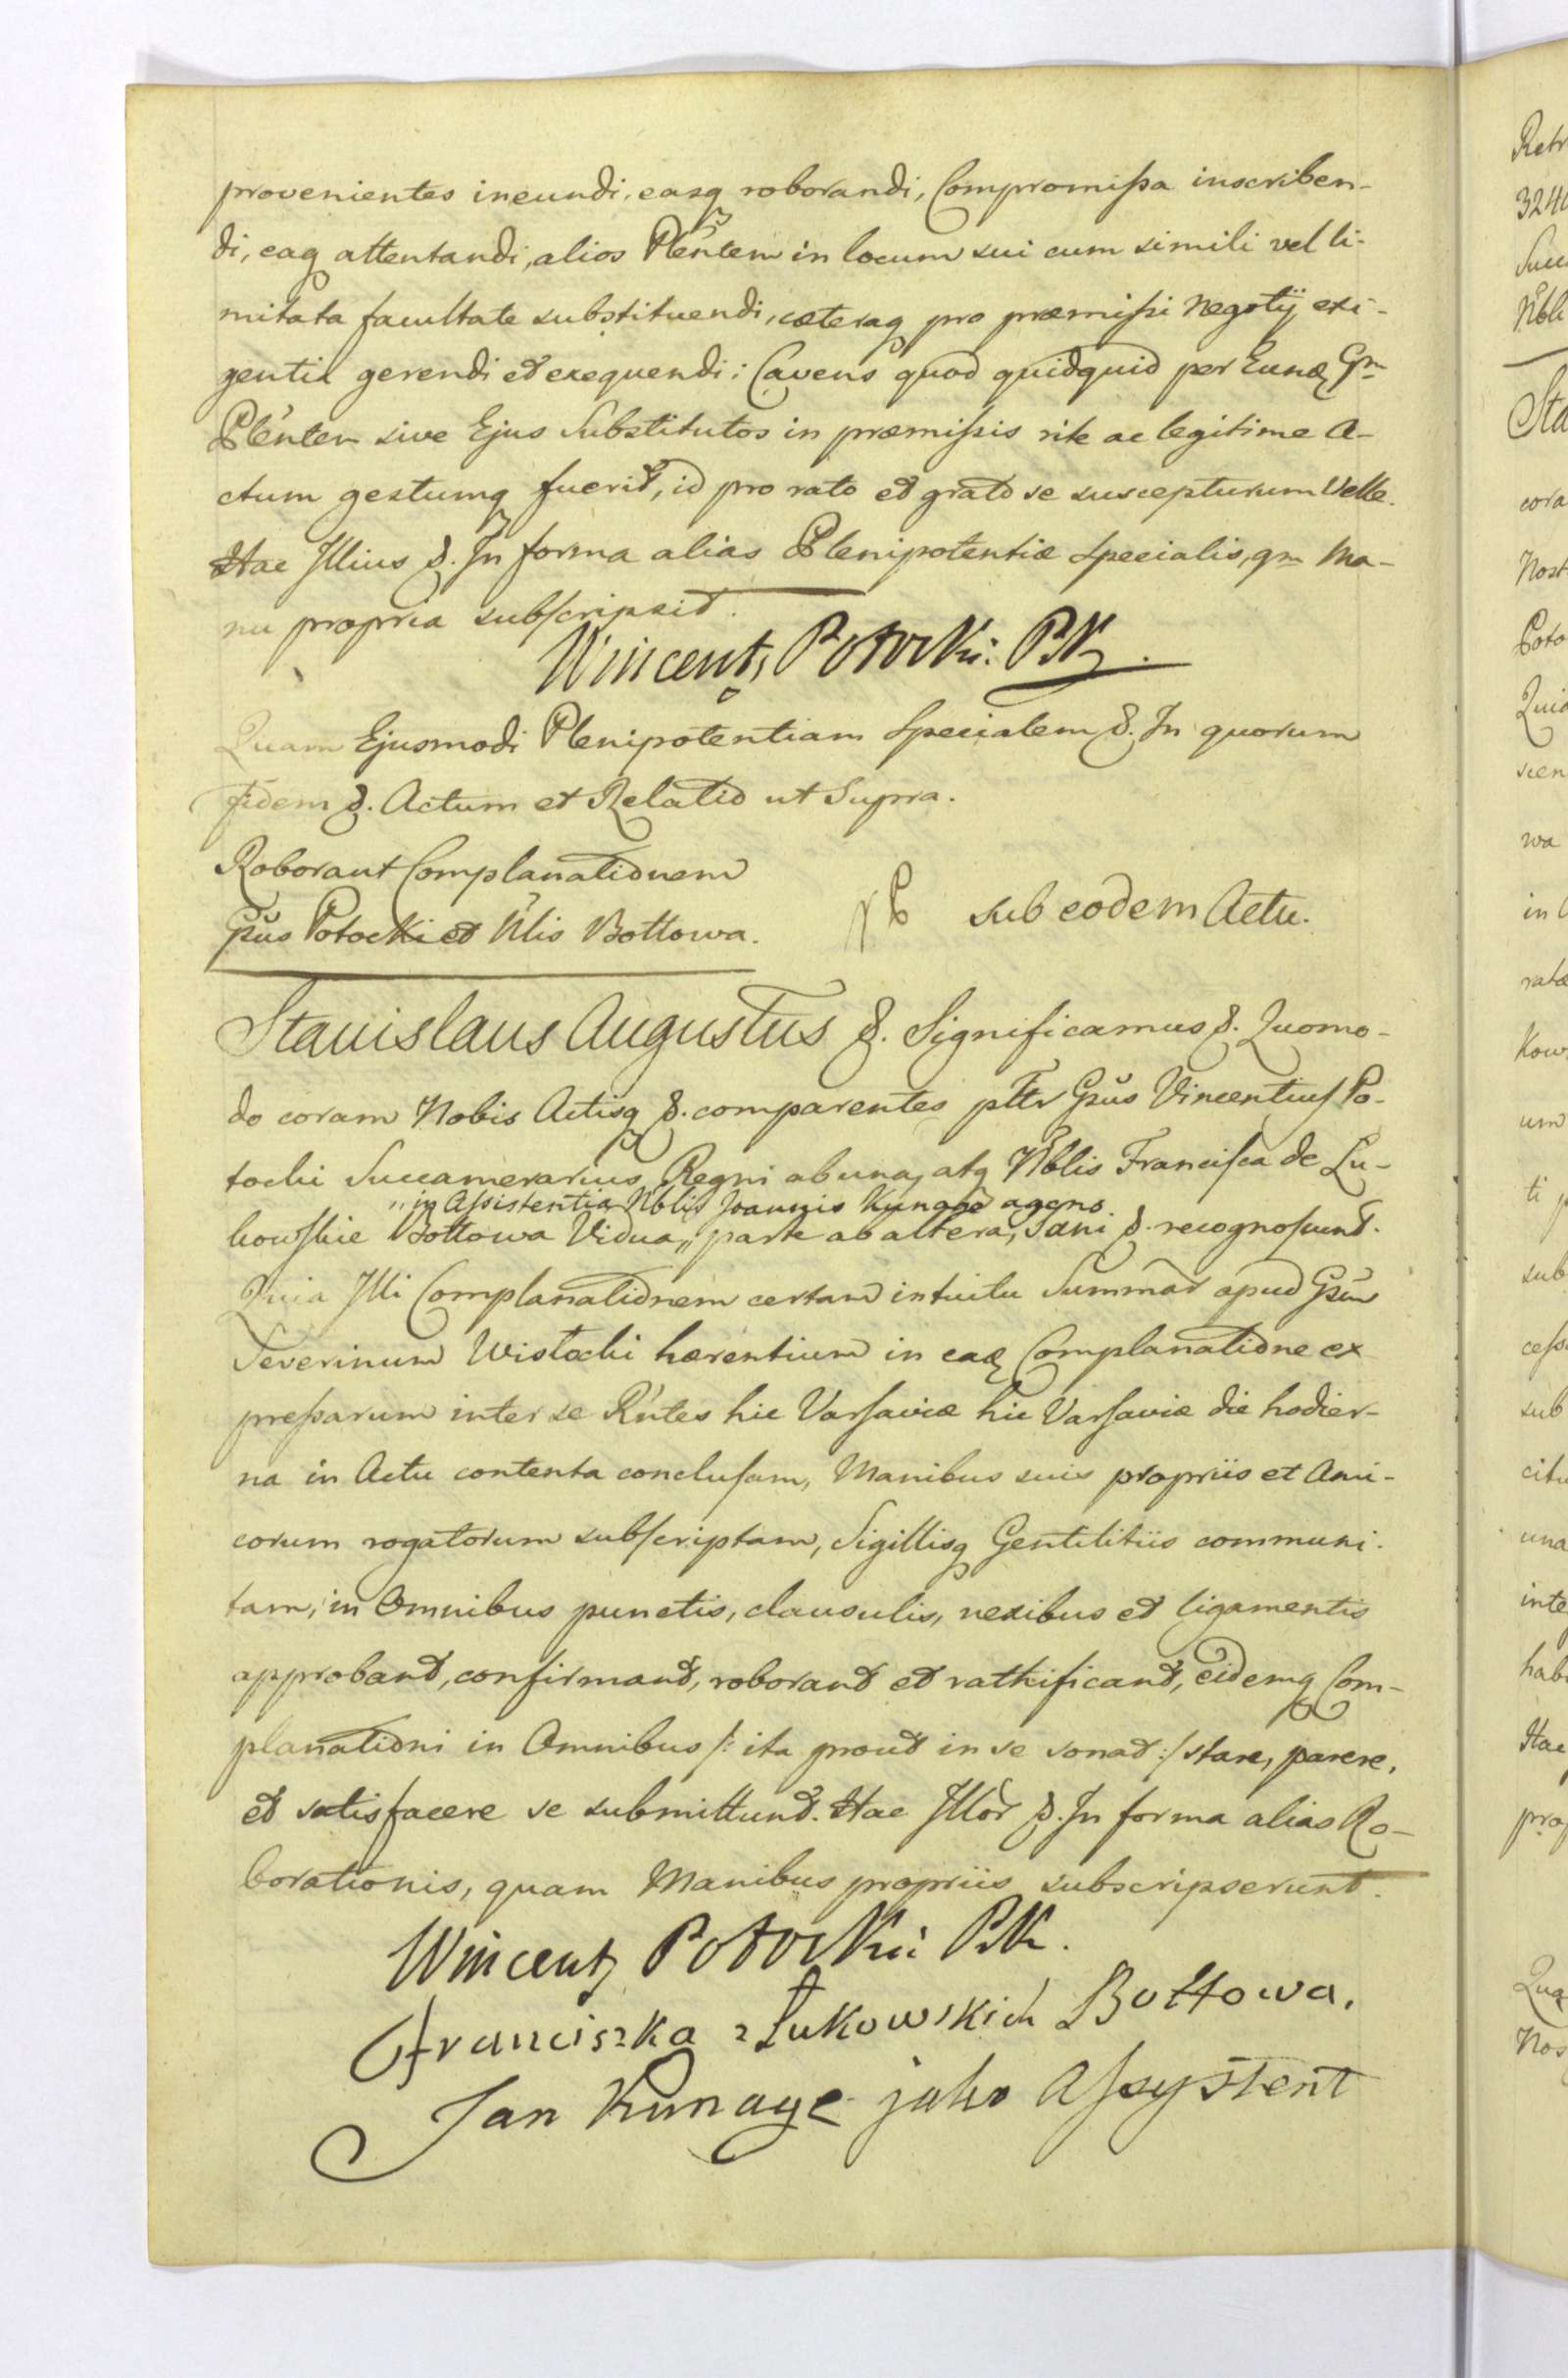 provenientes ineundi, easq roborandi, Compromissa inscriben-
di, eaq attentandi, alios Plentem in locum sui cum simili vel li-
mitata facultate substituendi, cæteraq pro præmissi Negotij exi-
gentia gerendi et exequendi: Cavens quod quidquid per Eund Gm
Plenten sive Ejus Substitutos in præmissis rite ac legitime A-
ctum gestumq fuerit, id pro rato et grato se suscepturum Velle.
Hac Illius &. In forma alias Plenipotentiæ Specialis, qm Ma-
nu propria subscripsit.
Wincenty Potocki: PK.
Quam Ejusmodi Plenipotentiam Specialem &. In quorum
fidem &. Actum et Relatio ut Supra.
Roborant Complanationem
Gsus Potocki et Nlis Bottowa. sub eodem Actu.
Stanislaus Augustus &. Significamus &. Quomo-
do coram Nobis Actisq &. comparentes pttr Gsus Vincentius Po-
tocki Succamerarius Regni ab una, atq Nblis Francisca de Lu-
„in Assistentia Nblis Joannis Kunage agens
kowskie Bottowa Vidua „ parte ab altera, Sani &. recognoscunt.
Quia Illi Complanationem certam intuitu Summar apud Gsum
Severinum Wistocki hærentium in ead Complanatione ex
pressarum inter se Rntes hic Varsaviæ hic Varsaviæ die hodier-
na in Actu contenta conclusam, Manibus suis propriis et Ami-
corum rogatorum subscriptam, Sigillisq Gentilitiis communi-
tam, in Omnibus punctis, clausulis, nexibus et ligamentis
approbant, confirmant, roborant et rathificant, eidemq Com-
planationi in Omnibus /: ita prout in se sonat :/ stare, parere,
et satisfacere se submittunt. Hac Illor &. In forma alias Ro-
borationis, quam Manibus propriis subscripserunt.
Wincenty Potocki PK.
Franciszka z Łukowskich Bottowa.
Jan Kunage jako Assystent